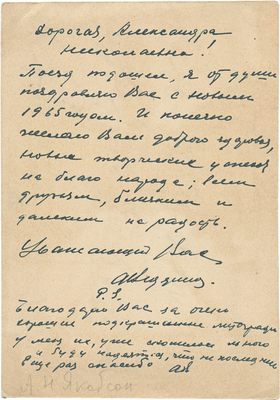 Дорогая, Александра
Николаевна!
Поезд подошел, я от души
поздравляю Вас с новым
1965 годом. И конечно
желаю Вам доброго здоровья,
новых творческих успехов
на благо народа; всем
друзьям, близким и
далеким на радость.
Уважающий Вас
P.S.
Благодарю Вас за очень
хорошие литографии
у меня их, уже скопилось много
и буду надеятся, что не последние
еще раз спасибо
А Н Якобсон